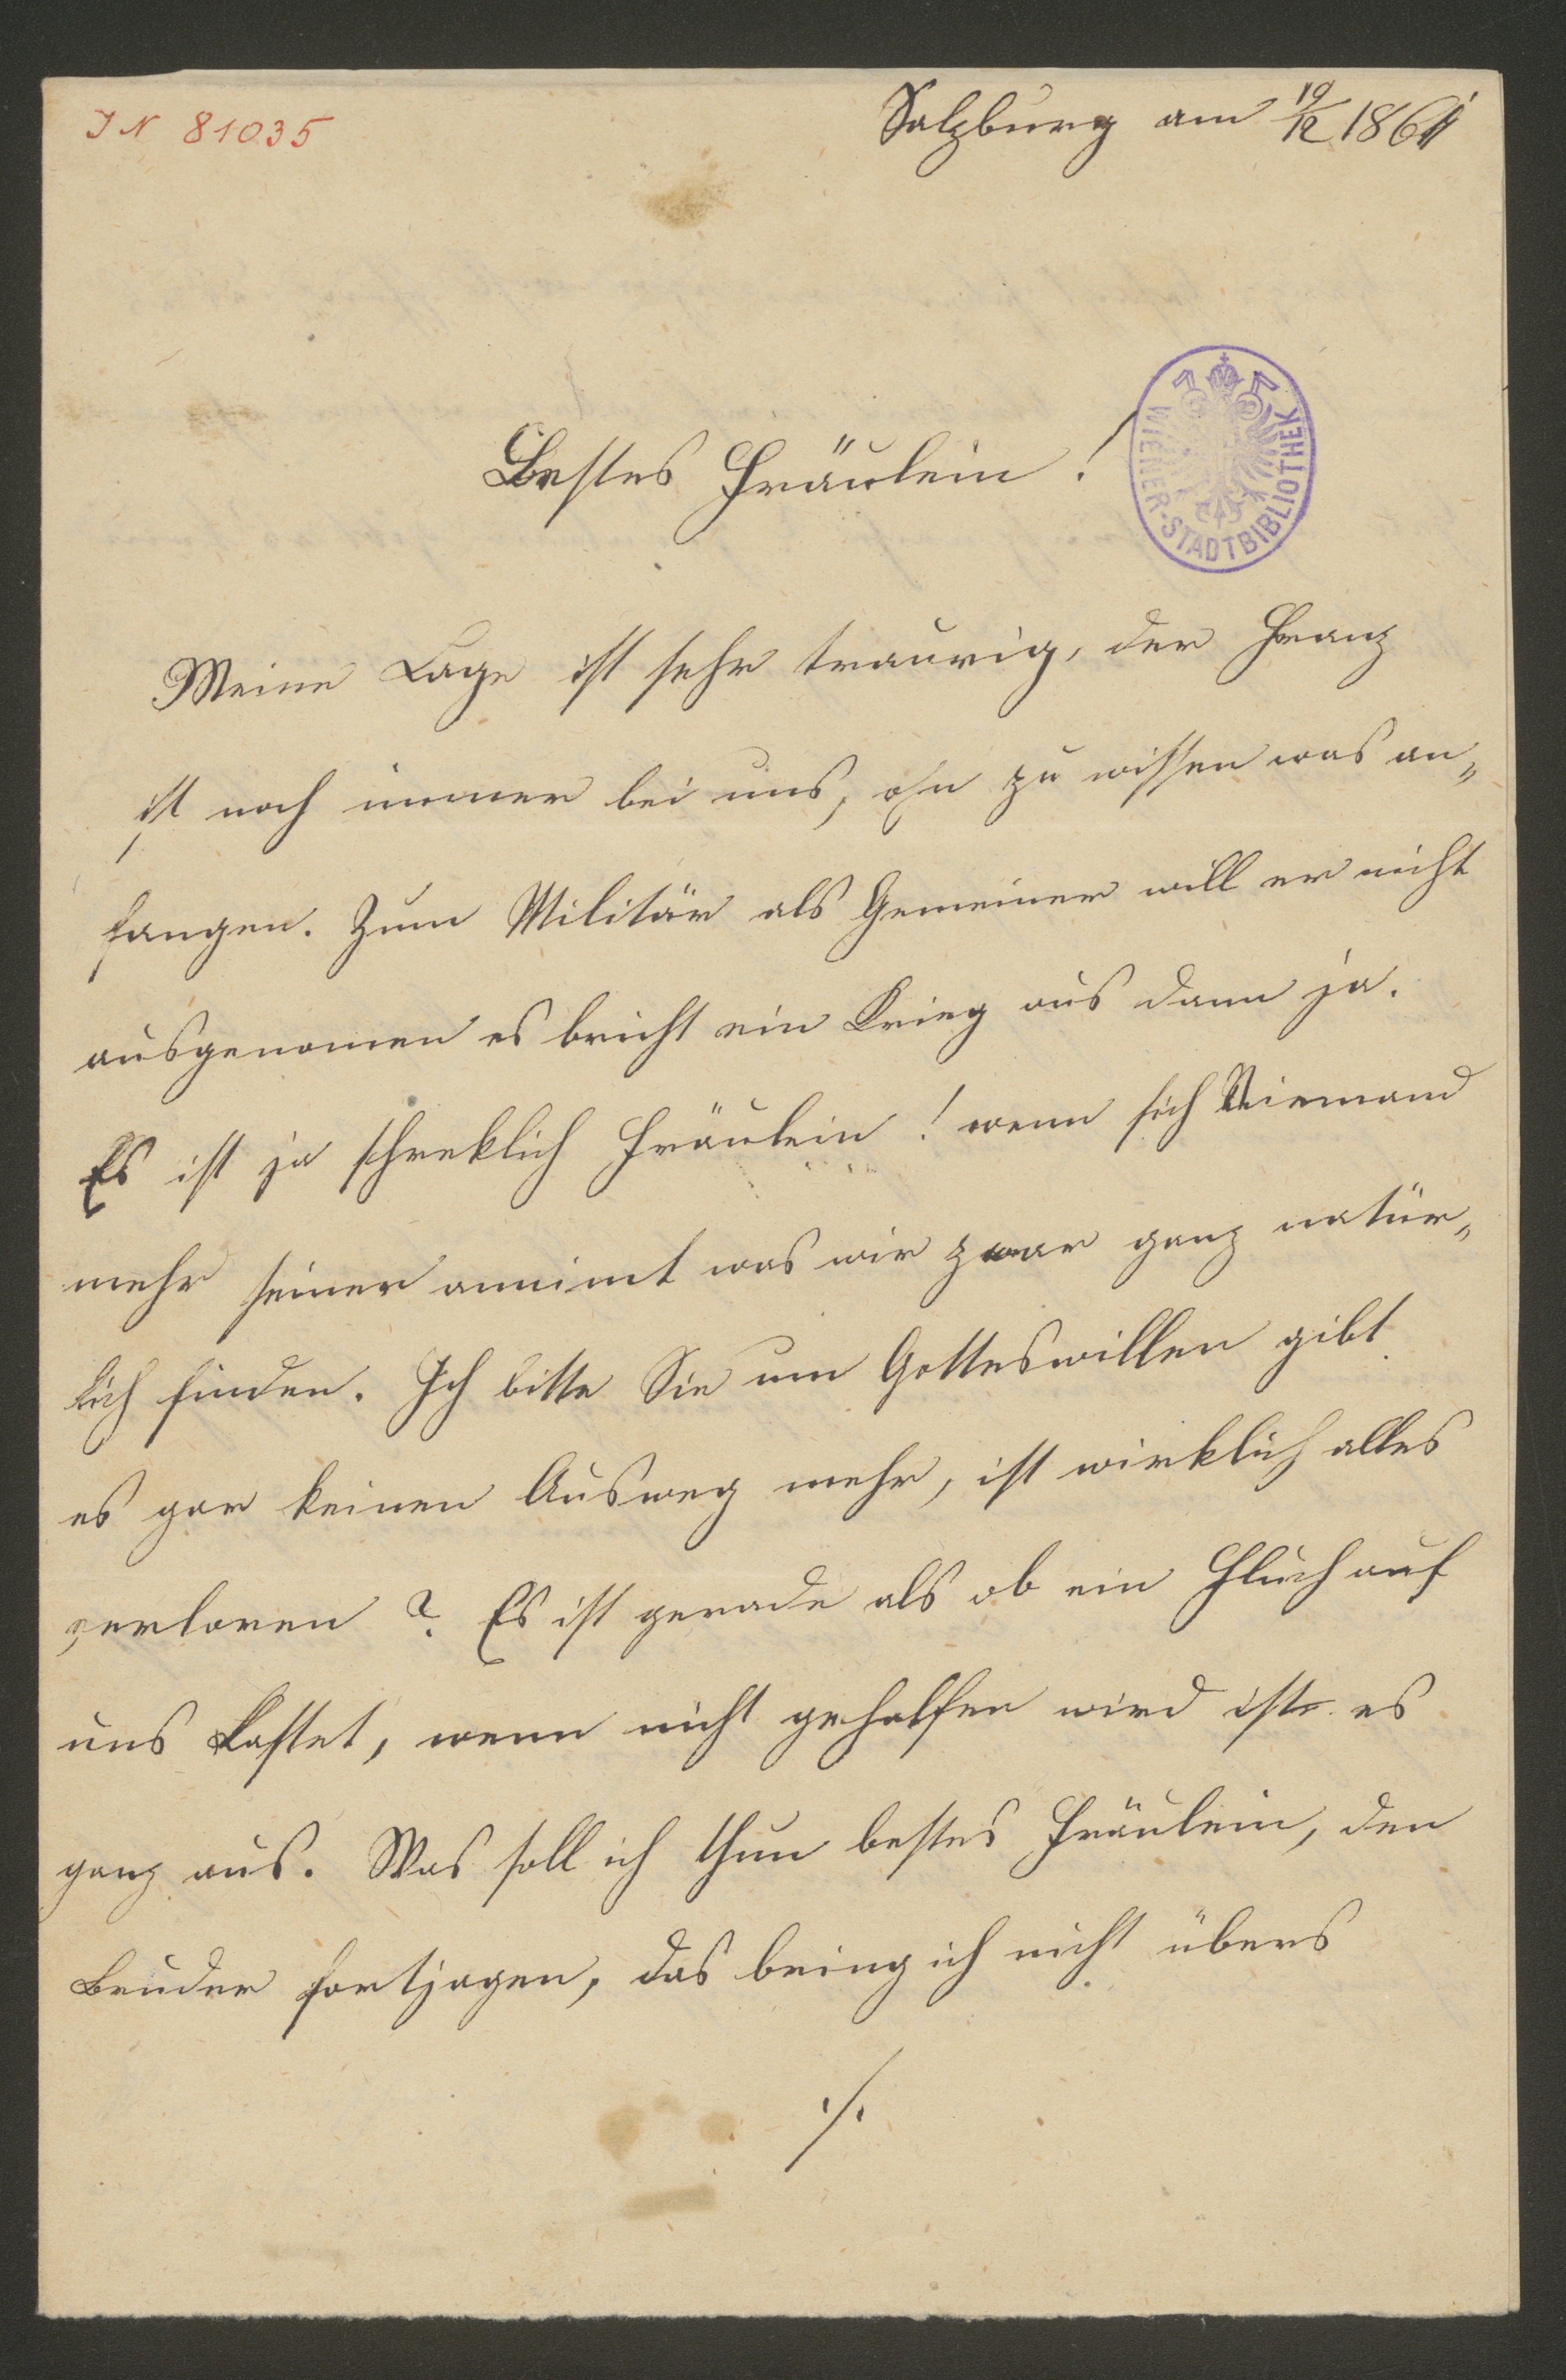 IN 81035
Salzburg am 19/12 1861
Bestes Fräulein!
WIENER-STADTBIBLIOTHEK
Meine Lage ist sehr traurig, der Franz
ist noch immer bei uns, ohn zu wissen was an„
fangen. Zum Militär als Gemeiner will er nicht
ausgenomen es bricht ein Krieg aus dann ja.
Es ist ja schreklich Fräulein! wenn sich Niemand
mehr seiner annimt was wir zwar ganz natür„
lich finden. Ich bitte Sie um Gotteswillen gibt
es gar keinen Ausweg mehr, ist wirklich alles
verloren? Es ist gerade als ob ein Fluch auf
uns lastet, wenn nicht geholfen wird ists es
ganz aus. Was soll ich thun bestes Fräulein, den
Bruder fortjagen, das bring ich nicht übers
./.